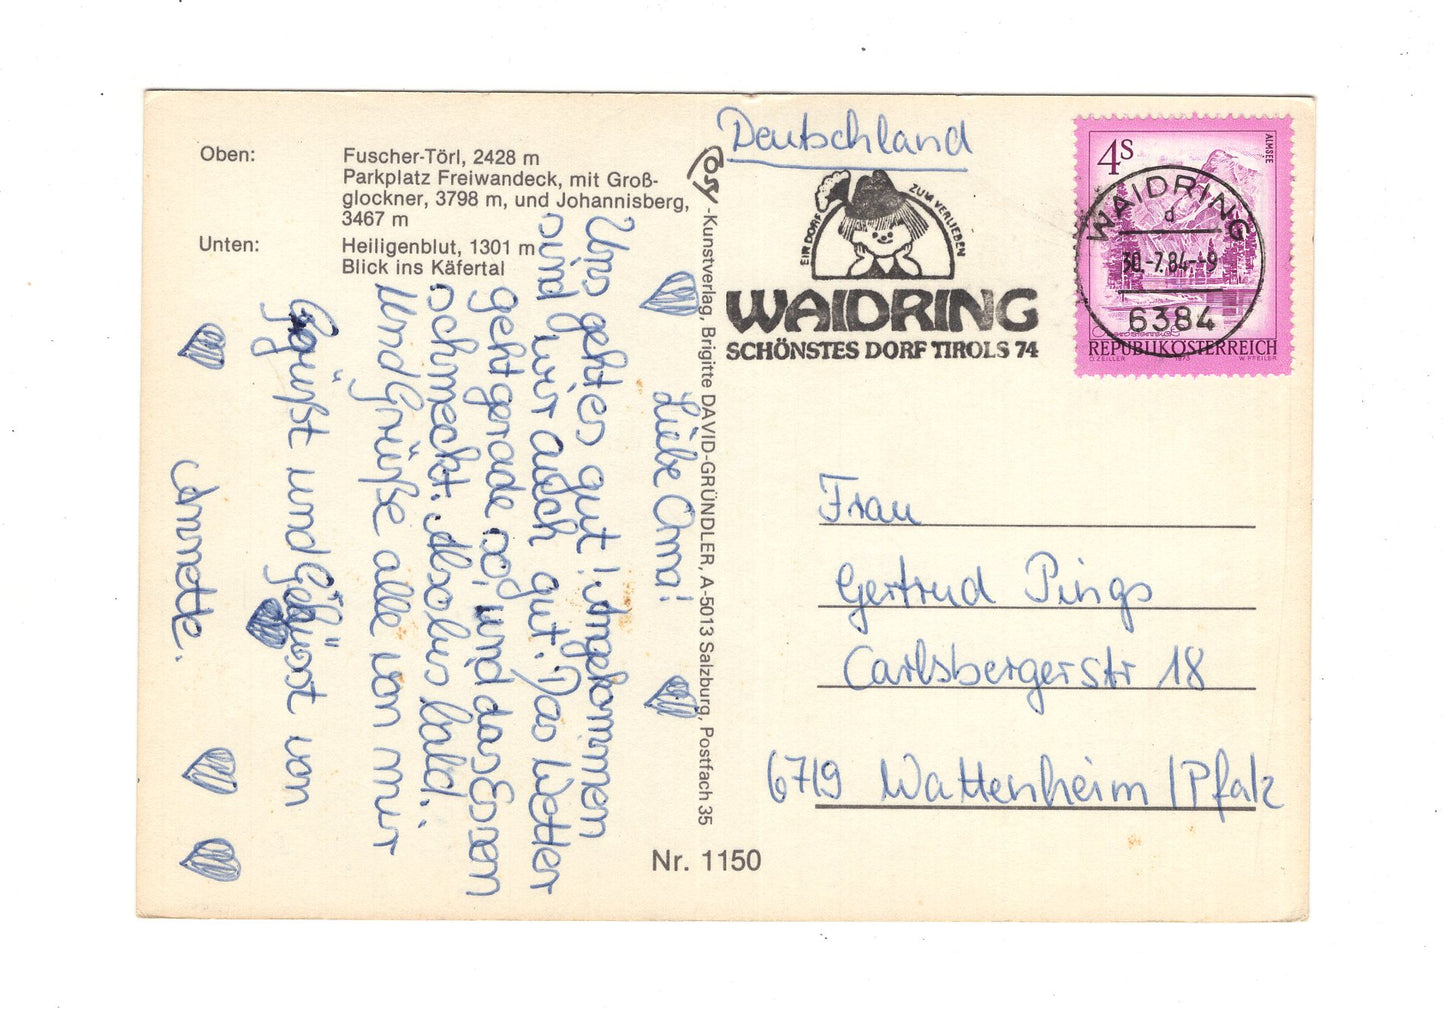 Oben: Fuscher-Törl, 2428 m
Parkplatz Freiwandeck, mit Groß-
glockner, 3798 m, und Johannisberg,
3467 m
Unten: Heiligenblut, 1301 m
Blick ins Käfertal
Liebe Oma!
Uns geht es gut! Angekommen
sind wir auch gut! Das Wetter
geht gerade so, und das Essen
schmeckt. Also bis bald.
Und Grüße alle von mir
Gegrüßt und Geküsst von
Annette.
COSY-Kunstverlag, Brigitte DAVID-GRÜNDLER, A-5013 Salzburg, Postfach 35
Nr. 1150
Deutschland
EIN DORF ZUM VERLIEBEN
WAIDRING
SCHÖNSTES DORF TIROLS 74
4S
ALMSEE
WAIDRING
d
30.-7.84--9
6384
REPUBLIK ÖSTERREICH
O. ZEILLER 1973 W. PFEILER
Frau
Gertrud Pings
Carlsbergerstr 18
6719 Wattenheim / Pfalz